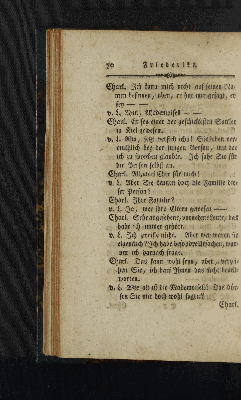 30 Friederike.
Charl. Ich kann mich nicht auf seinen Na-
men besinnen, aber, er hat mir gesagt, er
sey — —
v. L. Nun, Mademoisell — —
Charl. Er sey einer der geschicktesten Sattler
in Kiel gewesen.
v. L. Aha, jetzt versteh ich's! Sie haben ver-
muthlich bey der jungen Person, mit der
ich zu sprechen glaubte. Ich sahe Sie für
die Person selbst an.
Charl. Allzuviel Ehre für mich!
v. L. Aber Sie kennen doch die Familie die-
ser Person?
Charl. Ihre Familie?
v. L. Ja, wer ihre Eltern gewesen —
Charl. Sehr angesehene, vornehme Leute, das
habe ich immer gehört.
v. L. Ich zweifle nicht. Aber wer waren sie
eigentlich? Ich habe Ursachen,
warum ich darnach frage.
Charl. Das kann wohl seyn, aber, verzei-
hen Sie, ich darf Ihnen das nicht beant-
worten.
v. L. Wie alt ist die Mademoisell? Das dür-
fen Sie mir doch wohl sagen?
Charl.